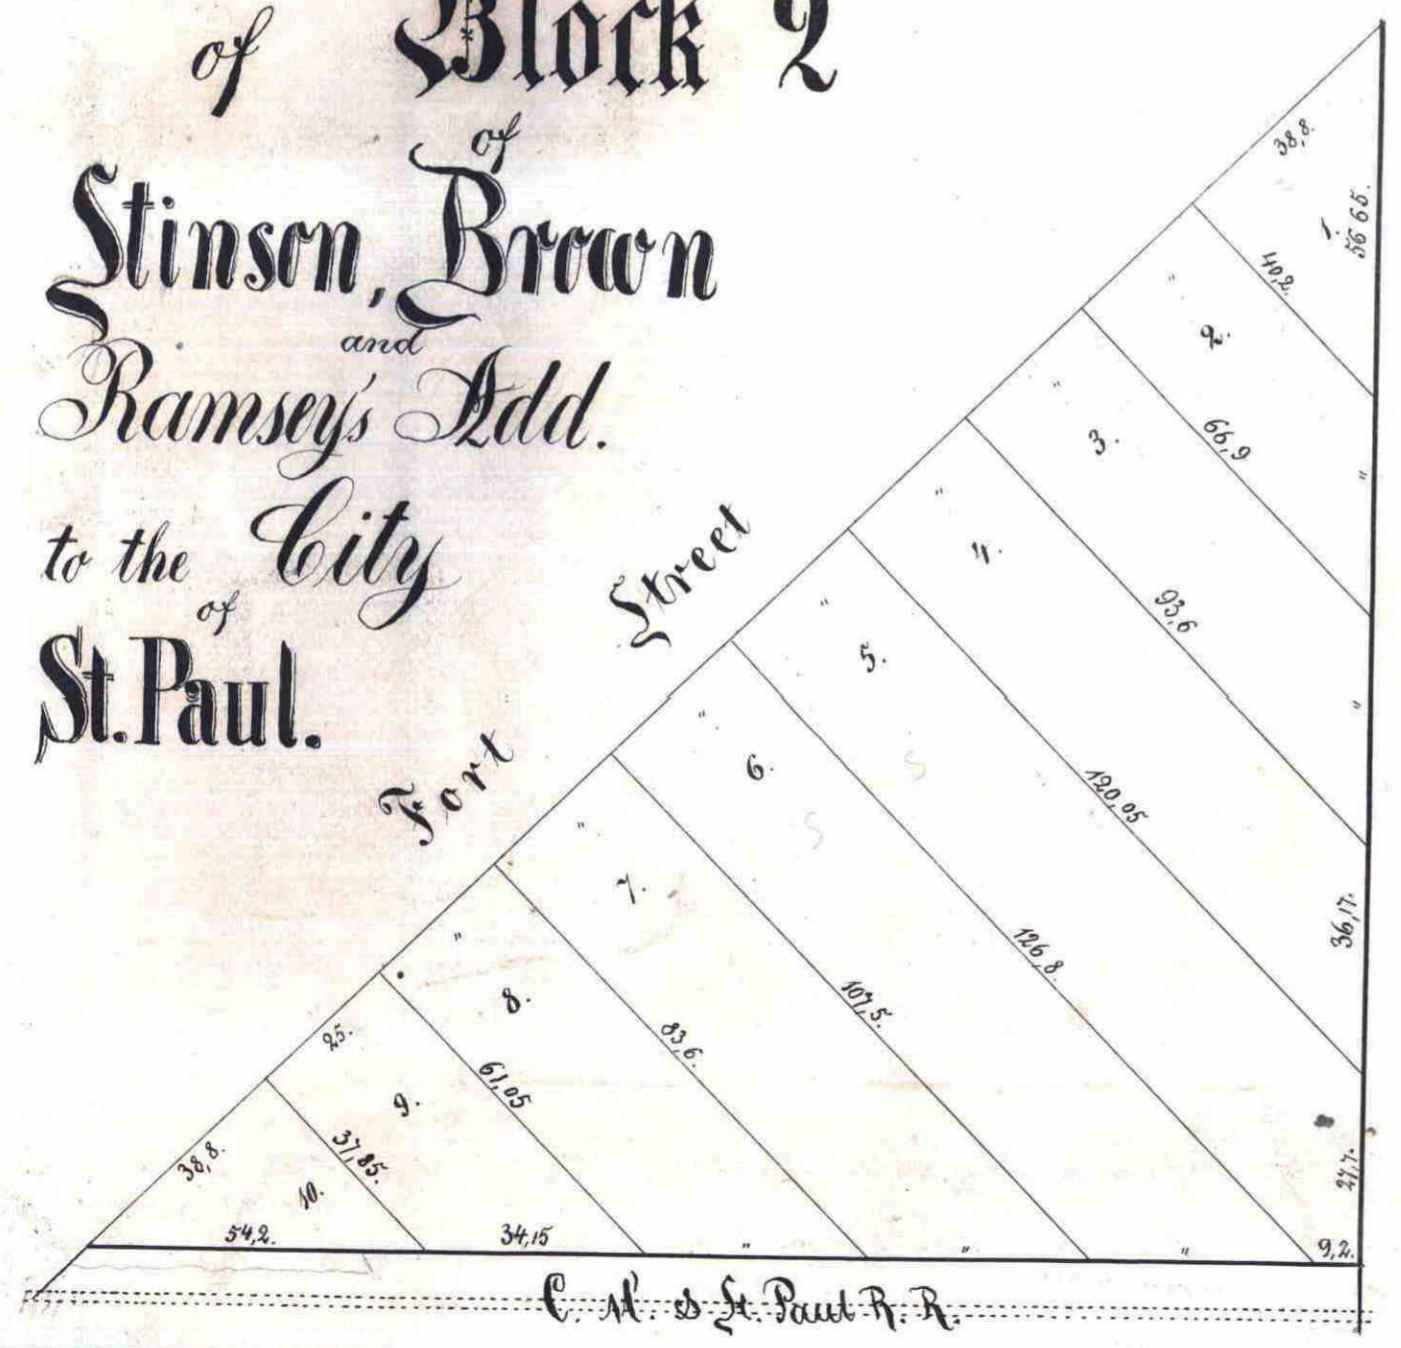 of Block 2
of
Stinson, Brown
and
Ramsey's Add.
to the City
of
St. Paul.
Fort Street
38,8.
1.
56 65.
40,2.
"
2.
66,9
"
"
3.
93,6
"
"
4.
120,05
36,17.
"
5.
126,8.
27,7.
9,2.
"
6.
107,5.
"
"
7.
83,6.
"
"
8.
61,05
"
25.
9.
37,85.
34,15
38,8.
10.
54,2.
C. M. & St. Paul R. R.